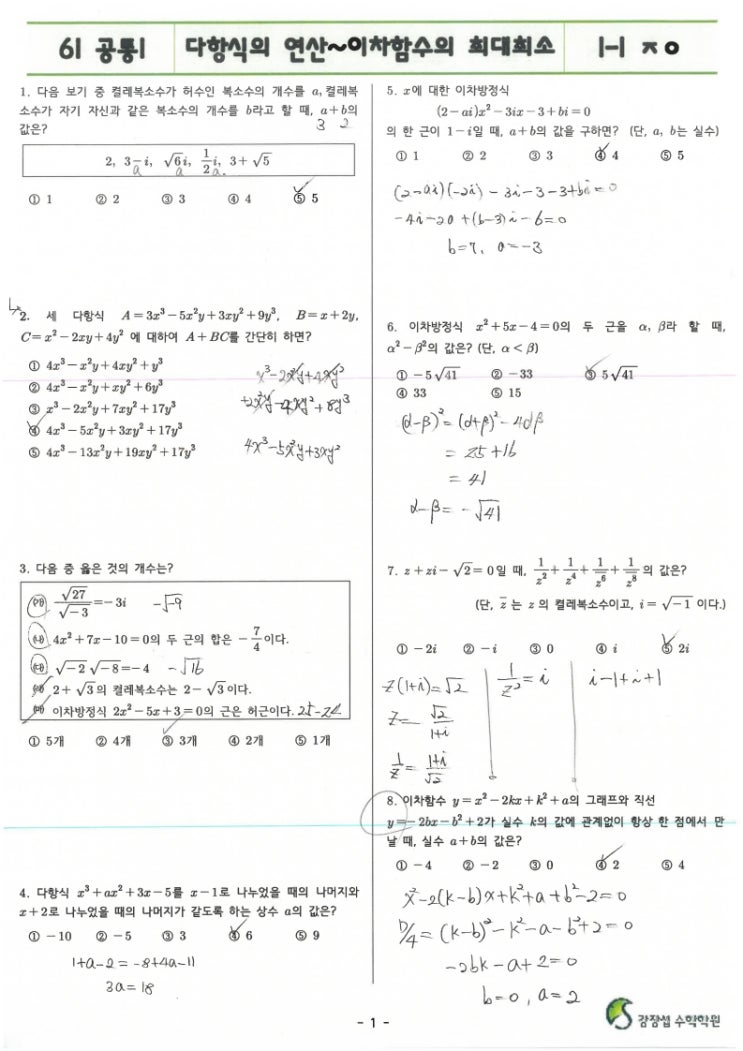 6| 공통| 다항식의 연산~이차함수의 최대최소 |-| ㅈㅇ
1. 다음 보기 중 켤레복소수가 허수인 복소수의 개수를 a, 켤레복
소수가 자기 자신과 같은 복소수의 개수를 b라고 할 때, a+b의
값은?
3 2
2, 3-i, √6i, 1/2 i, 3+√5
a a a.
① 1 ② 2 ③ 3 ④ 4 ⑤ 5
2. 세 다항식 A=3x³-5x²y+3xy²+9y³, B=x+2y,
C=x²-2xy+4y² 에 대하여 A+BC를 간단히 하면?
① 4x³-x²y+4xy²+y³
② 4x³-x²y+xy²+6y³
③ x³-2x²y+7xy²+17y³
④ 4x³-5x²y+3xy²+17y³
⑤ 4x³-13x²y+19xy²+17y³
x³-2x²y+4xy²
+2x²y-4xy²+8y³
4x³-5x²y+3xy²
3. 다음 중 옳은 것의 개수는?
√27/√-3=-3i -√-9
4x²+7x-10=0의 두 근의 합은 -7/4이다.
√-2 √-8=-4 -√16
2+√3의 켤레복소수는 2-√3이다.
이차방정식 2x²-5x+3=0의 근은 허근이다. 25-24
① 5개 ② 4개 ③ 3개 ④ 2개 ⑤ 1개
4. 다항식 x³+ax²+3x-5를 x-1로 나누었을 때의 나머지와
x+2로 나누었을 때의 나머지가 같도록 하는 상수 a의 값은?
① -10 ② -5 ③ 3 ④ 6 ⑤ 9
1+a-2=-8+4a-11
3a=18
5. x에 대한 이차방정식
(2-ai)x²-3ix-3+bi=0
의 한 근이 1-i일 때, a+b의 값을 구하면? (단, a, b는 실수)
① 1 ② 2 ③ 3 ④ 4 ⑤ 5
(2-ai)(-2i)-3i-3-3+bi=0
-4i-2a+(b-3)i-6=0
b=7, a=-3
6. 이차방정식 x²+5x-4=0의 두 근을 α, β라 할 때,
α²-β²의 값은? (단, α<β)
① -5√41 ② -33 ③ 5√41
④ 33 ⑤ 15
(α-β)²=(α+β)²-4αβ
=25+16
=41
α-β=-√41
7. z+zi-√2=0일 때, 1/z²+1/z⁴+1/z⁶+1/z⁸의 값은?
(단, z̄는 z의 켤레복소수이고, i=√-1 이다.)
① -2i ② -i ③ 0 ④ i ⑤ 2i
z(1+i)=√2 1/z²=i i-1+-i+1
z=√2/1+i
1/z=1+i/√2
8. 이차함수 y=x²-2kx+k²+a의 그래프와 직선
y=-2bx-b²+2가 실수 k의 값에 관계없이 항상 한 점에서 만
날 때, 실수 a+b의 값은?
① -4 ② -2 ③ 0 ④ 2 ⑤ 4
x²-2(k-b)x+k²+a+b²-2=0
D/4=(k-b)²-k²-a-b²+2=0
-2bk-a+2=0
b=0, a=2
- 1 -
강장섭 수학학원